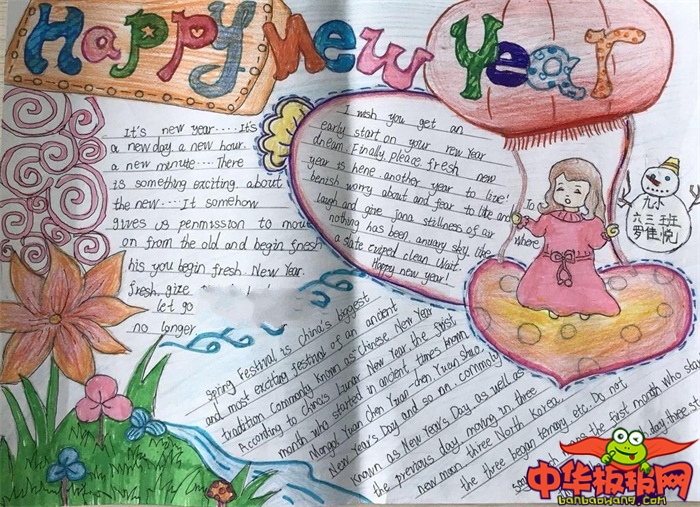 Happy New Year
It's new year.... It's
a new day. a new hour.
a new minute.... There
is something exciting about
the new.... It somehow
gives us permission to move
on from the old and begin fresh
his you begin fresh. New Year.
fresh gize
let go
no longer
I wish you get an
early start on your new year
dream. Finally pleace fresh new
year is hene another year to live!
benish worry about and fear to life and
laugh and give jona stillness of air
nothing has been anuary sky like
a slate cwiped clean. Wait.
Happy new year!
To
where
九小
六三班
罗佳悦
Spring Festival is china's biggest
and most exciting festival of an ancient
tradition commonly known as Chinese New Year
According to china's Lunar New Year the first
month who started in ancient times known
Margol Yuan chen Yuan chen Yuan Shuo.
New Year's Day and so on. commoly
known as New Year's Day as well as
the previous day moving in three
new moon. three North Korea.
the three began ternary etc. Do not
the first month who stay
day three st
中华板报网
banbaowang.com